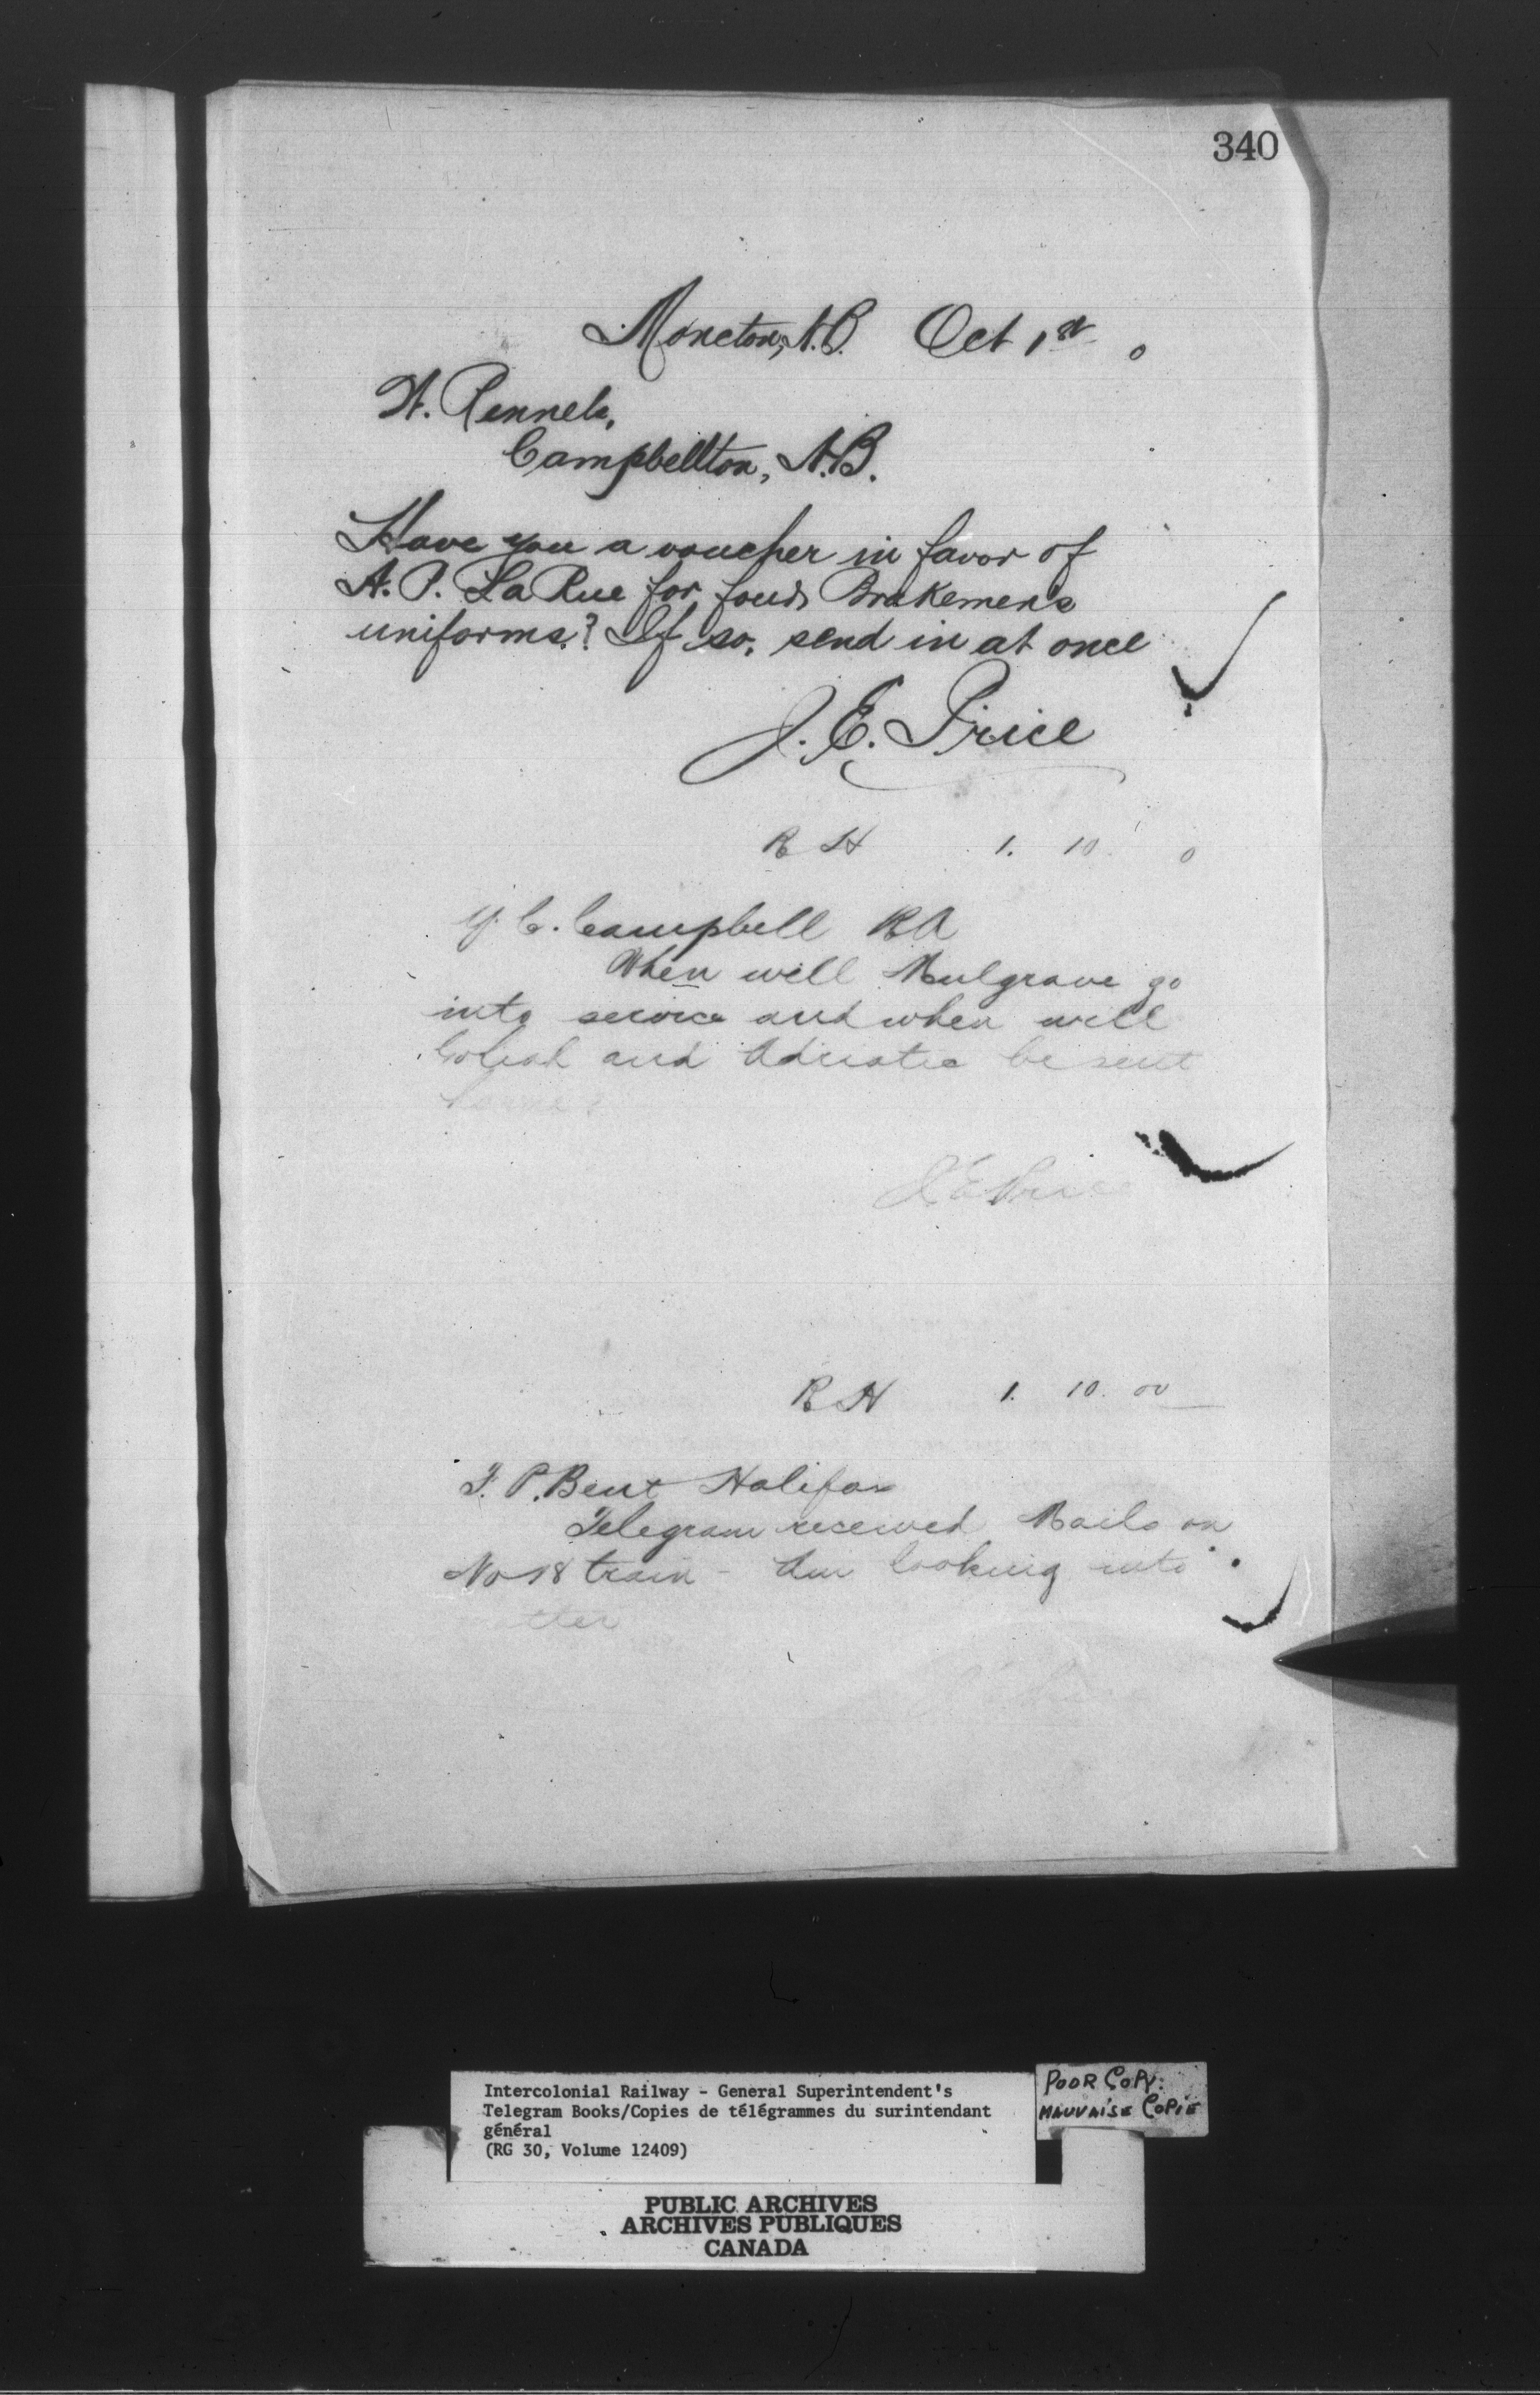 340
Moncton, N.B. Oct 1st 0
W. Rennels,
Campbellton, N.B.
Have you a voucher in favor of
A. P. LaRue for four Brakemen's
uniforms? If so, send in at once
J. E. Price
R H 1. 10. 0
Y. C. Campbell R A
When will Mulgrave go
into service and when will
Goliah and Adriatic be sent
home?
J E Price
R H 1. 10. 00
F. P. Bent Halifax
Telegram received Mails on
No 18 train - Am looking into
J E Price
Intercolonial Railway - General Superintendent's
Telegram Books/Copies de télégrammes du surintendant
général
(RG 30, Volume 12409)
POOR COPY.
MAUVAISE COPIE
PUBLIC ARCHIVES
ARCHIVES PUBLIQUES
CANADA